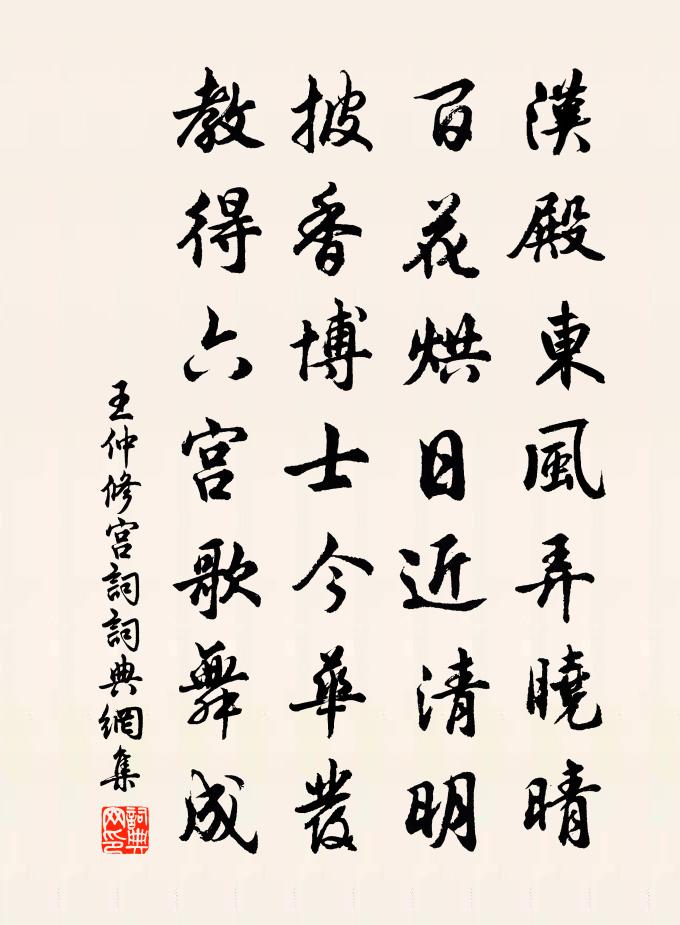 漢殿東風弄曉晴
百花烘日近清明
披香博士今華發
教得六宮歌舞成
王仲修宮詞詞典網集
詞典网印